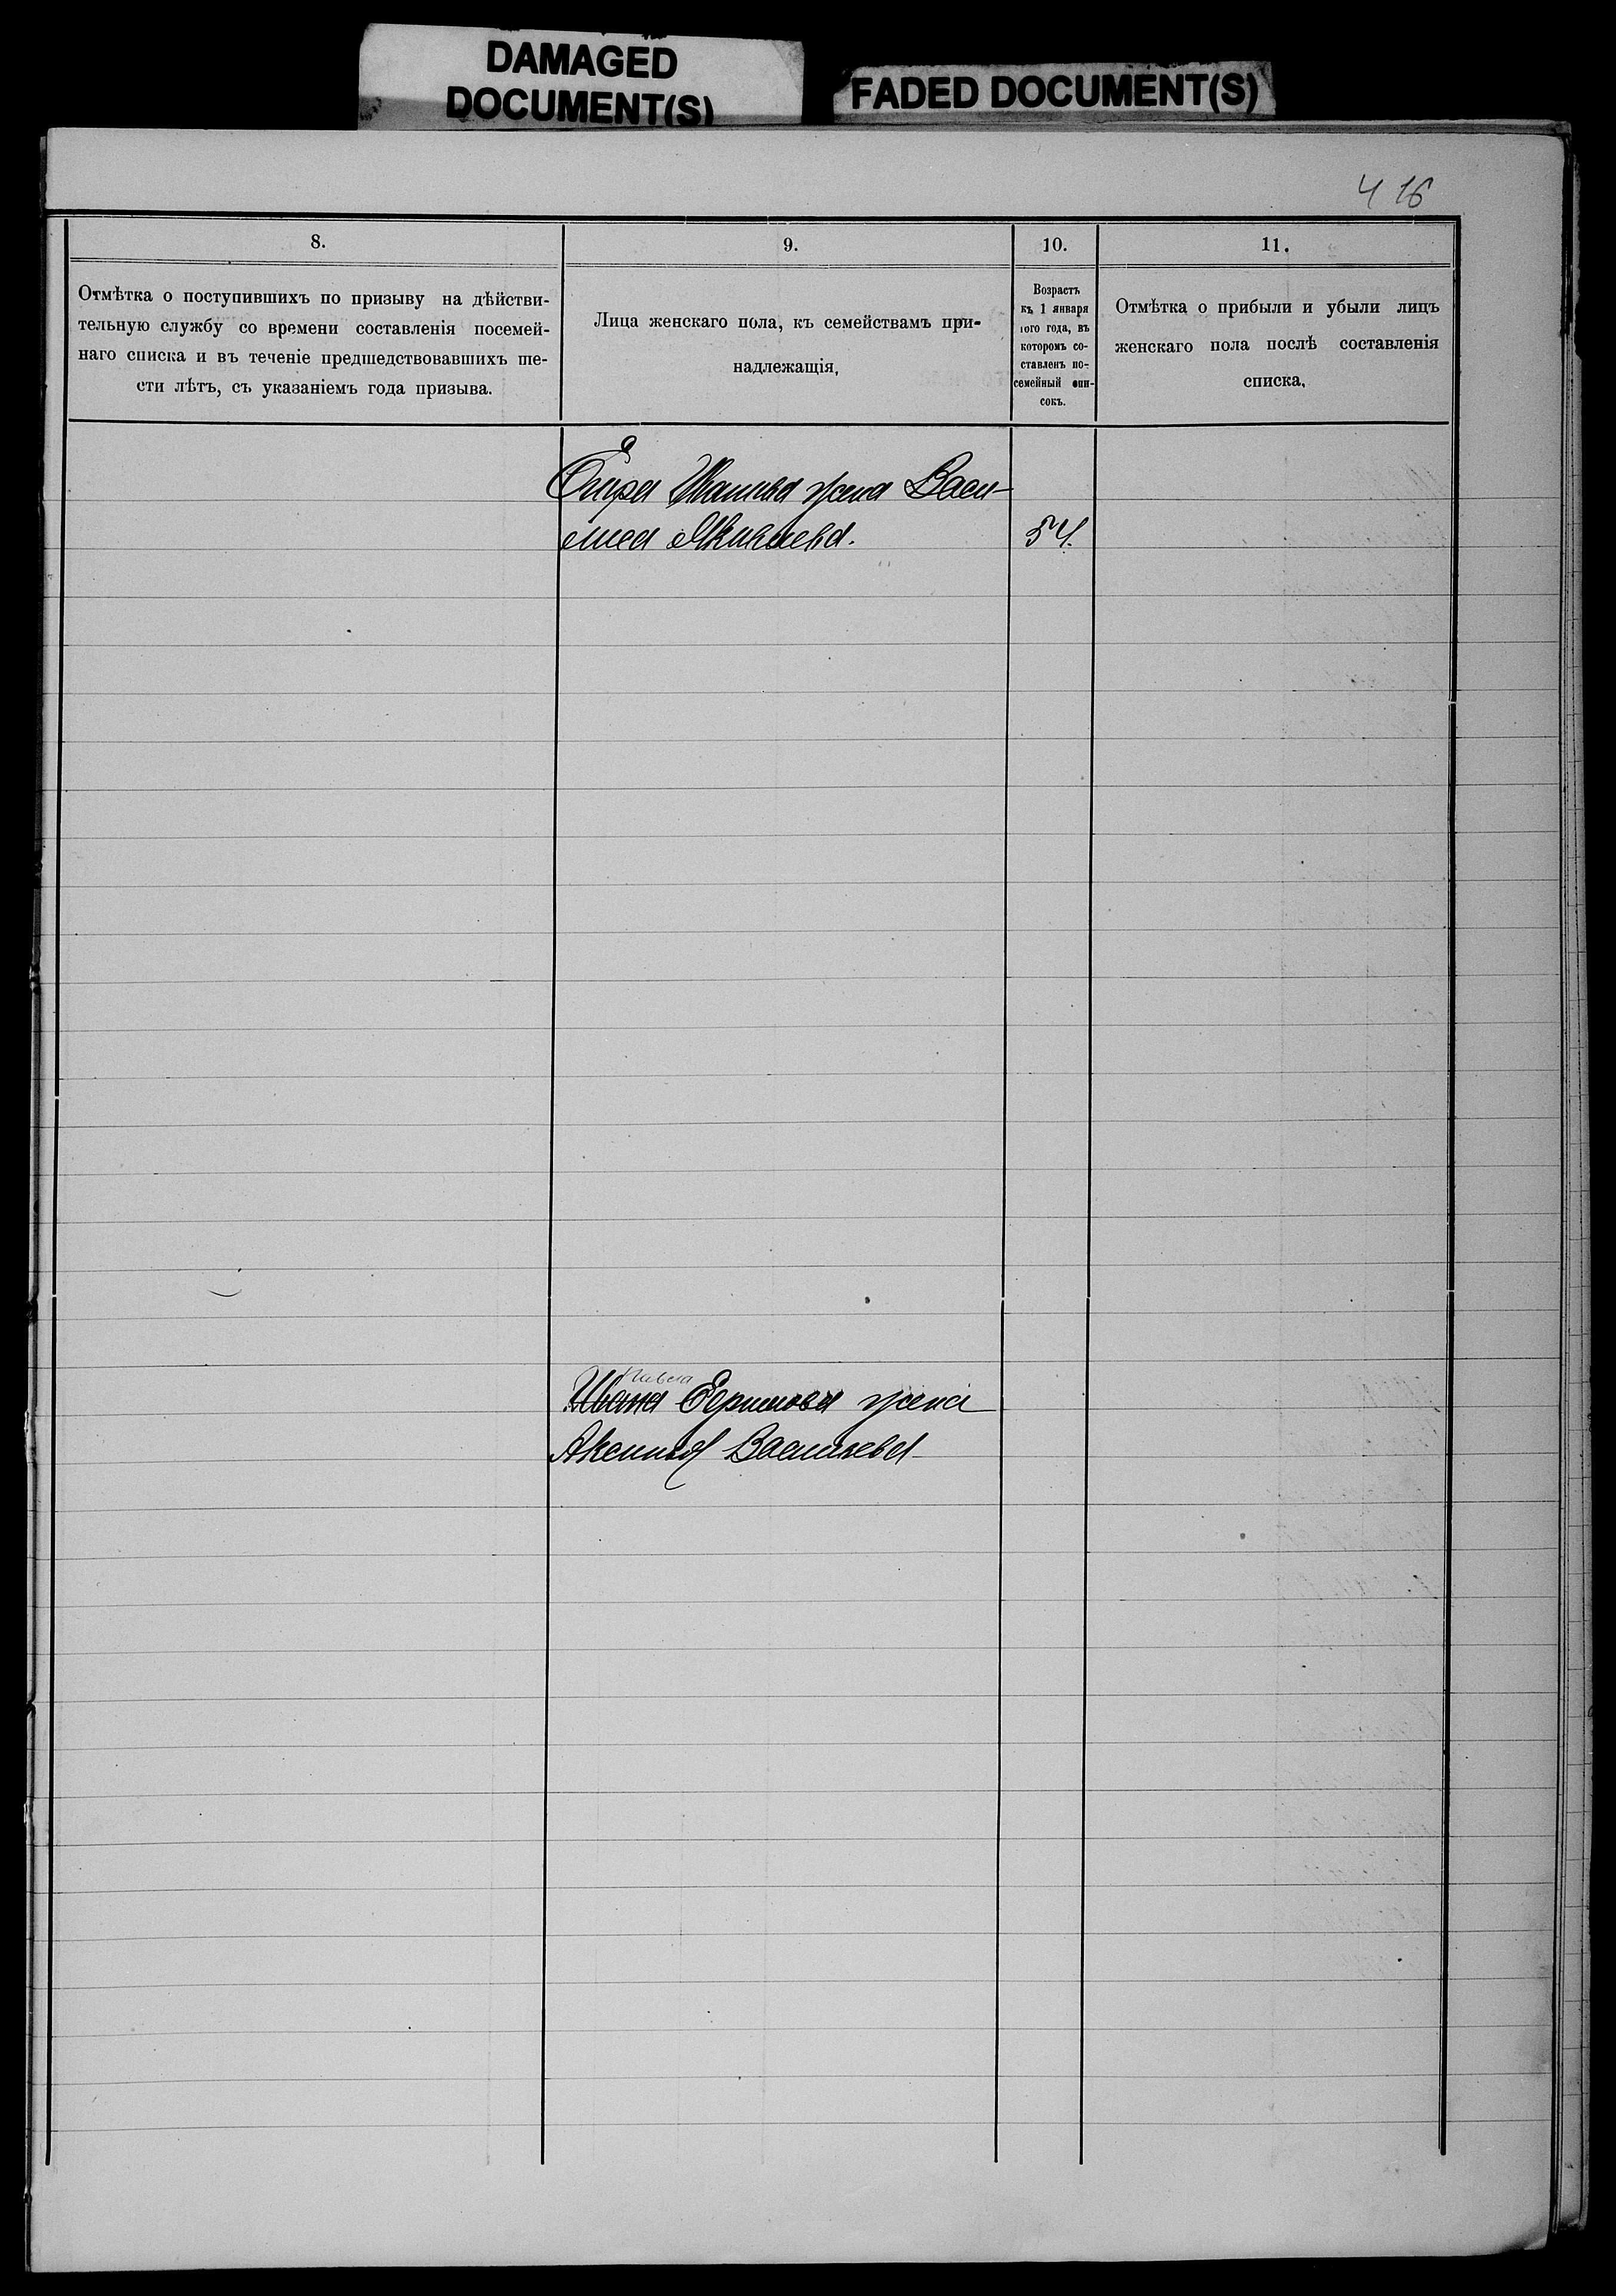 DAMAGED
DOCUMENT(S)
FADED DOCUMENT(S)
4 16
8.
9.
10.
11.
Отмѣтка о поступившихъ по призыву на дѣйстви-
тельную службу со времени составленія посемей-
наго списка и въ теченіе предшедствовавшихъ ше-
сти лѣтъ, съ указаніемъ года призыва.
Лица женскаго пола, къ семействамъ при-
надлежащія,
Возрастъ
къ 1 января
того года, въ
которомъ со-
ставленъ по-
семейный спи-
сокъ.
Отмѣтка о прибыли и убыли лицъ
женскаго пола послѣ составленія
списка,
Ивана жена Васи-
лиса 54.
Ивана Ефимова жена
Аксинья Васильева